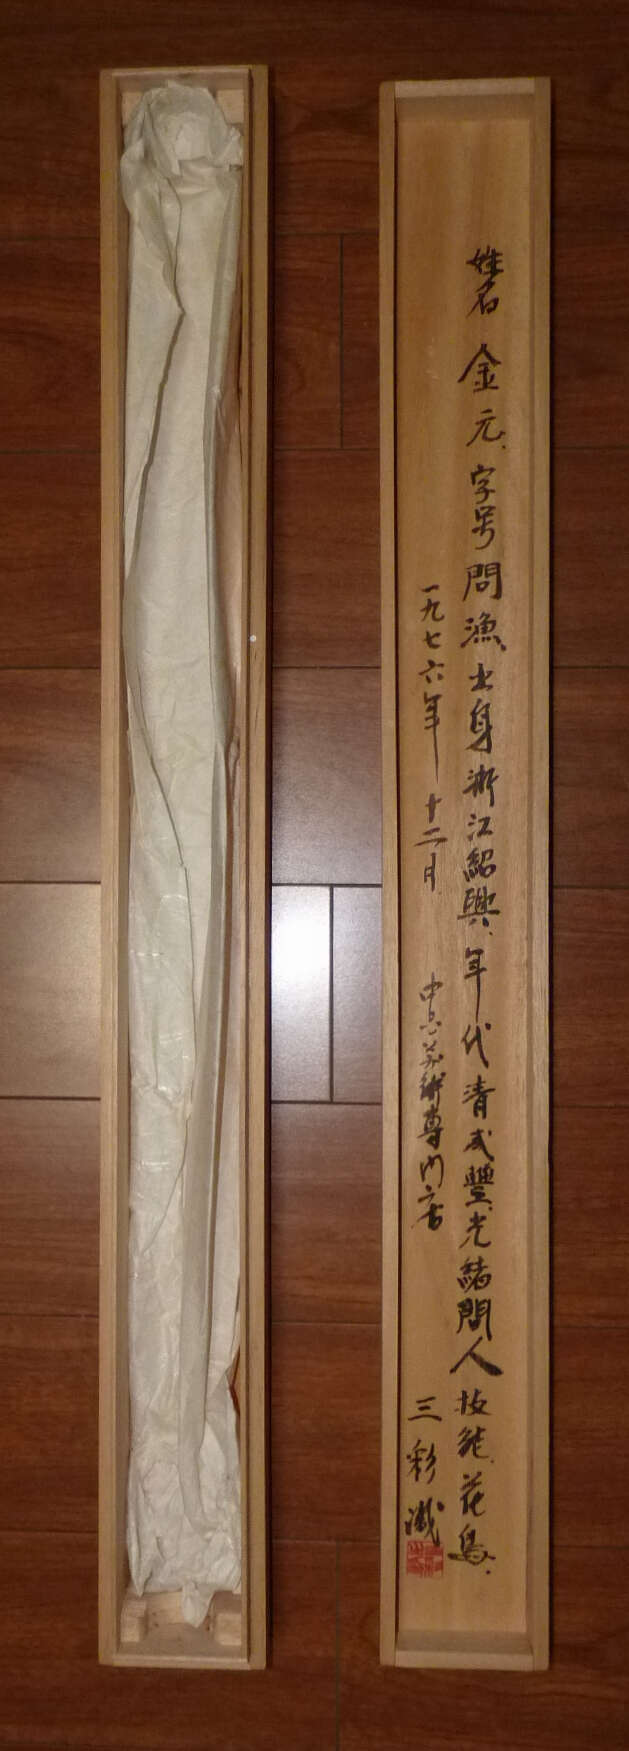 姓名 金元、字号問漁、出身浙江紹興、年代清咸豐、光緒間人 技能、花鳥、
一九七六年 十二月 中国美術専門店
三彩識